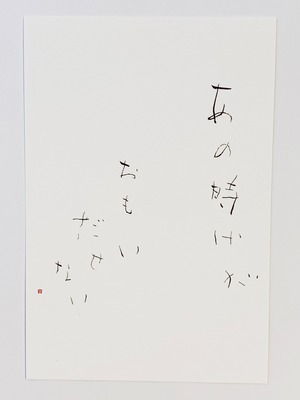 あの時代が
おもい
だせ
ない